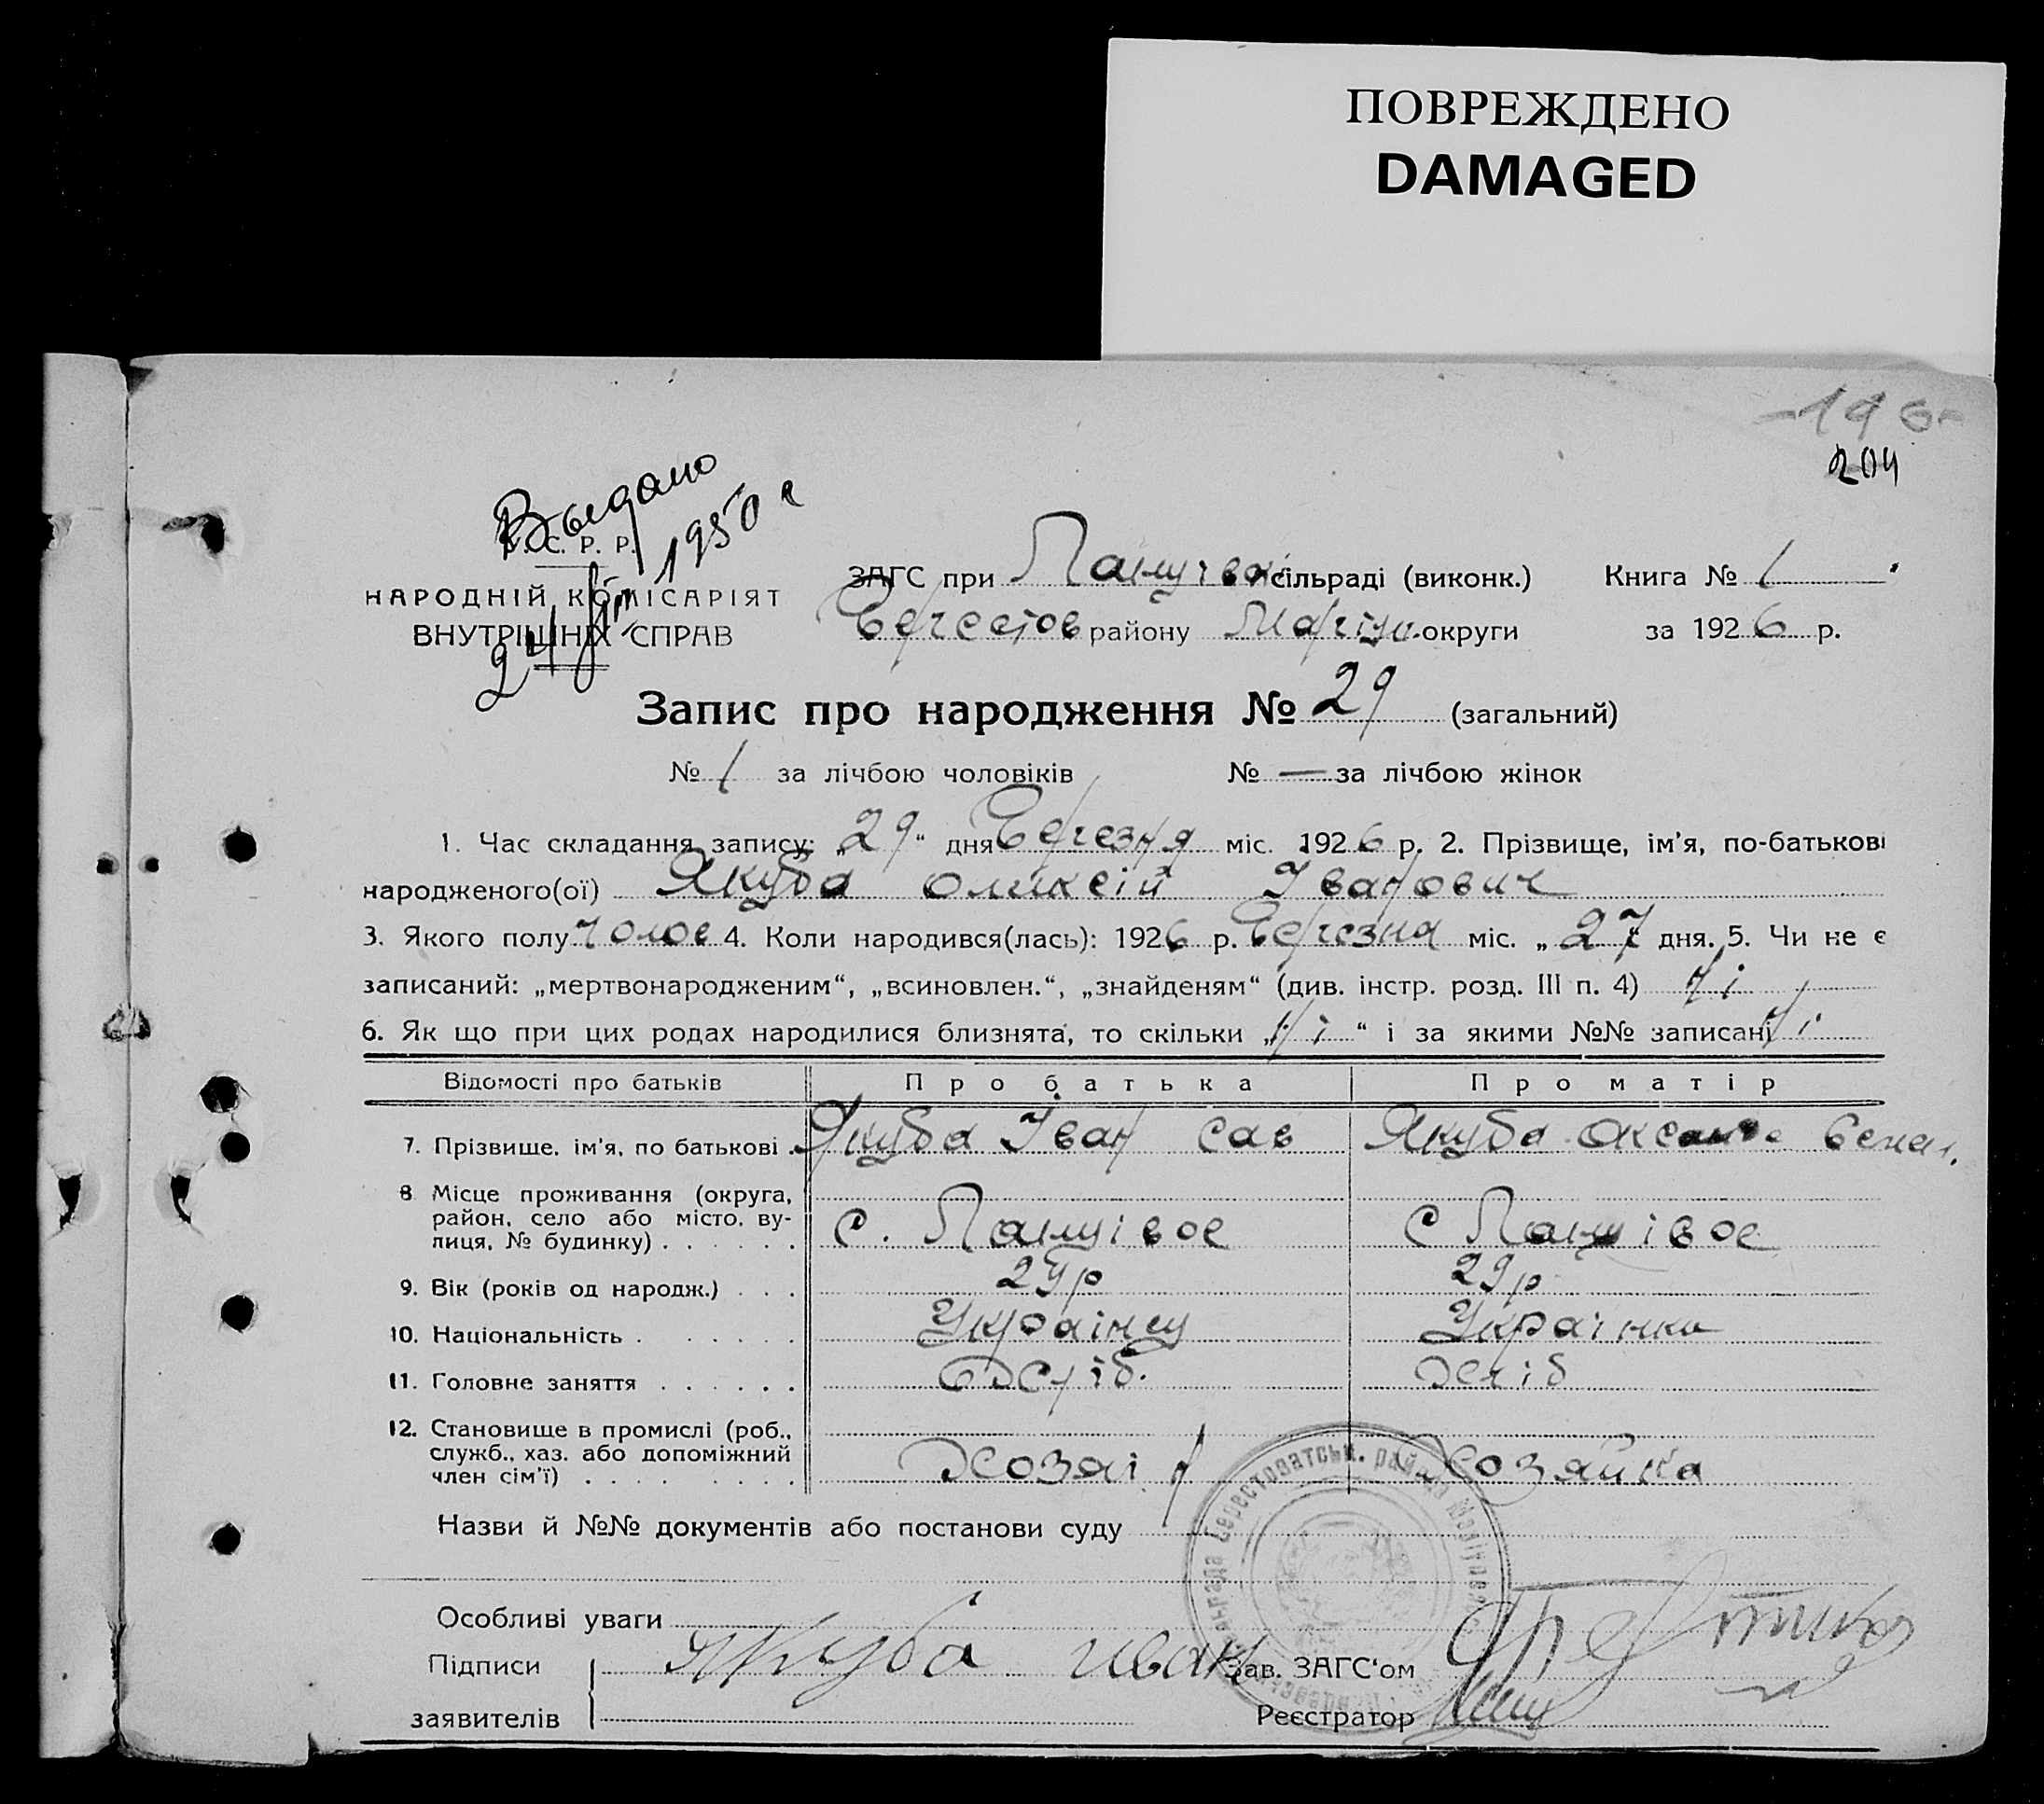 ПОВРЕЖДЕНО
DAMAGED
196
204
Выдано
1950 г
24
У. С. Р. Р.
НАРОДНІЙ КОМІСАРІЯТ
ВНУТРІШНІХ СПРАВ
ЗАГС при сільраді (виконк.) Книга № 1
Берестов району Маріуп. округи за 1926 р.
Запис про народження № 29 (загальний)
№ 1 за лічбою чоловіків № — за лічбою жінок
1. Час складання запису: „29“ дня Березня міс. 1926 р. 2. Прізвище, ім'я, по-батькові
народженого(ої) Якуба Олексій Іванович
3. Якого полу чолов 4. Коли народився(лась): 1926 р. Березня міс. „27“ дня. 5. Чи не є
записаний: „мертвонародженим“, „всиновлен.“, „знайденям“ (див. інстр. розд. III п. 4) Ні
6. Як що при цих родах народилися близнята, то скільки „Ні“ і за якими №№ записані Ні
Відомості про батьків Про батька Про матір
7. Прізвище, ім'я, по батькові . Якуба Іван Сав Якуба Оксана
8 Місце проживання (округа,
район, село або місто, ву-
лиця, № будинку) . . . . . . с. с
9. Вік (років од народж.) . . . 29р 29р
10. Національність . . . . . Українец Українка
11. Головне заняття . . . . . . Хліб. Хліб
12. Становище в промислі (роб.,
служб., хаз. або допоміжний
член сім'ї) . . . . . . . Хозяін Хозяйка
Назви й №№ документів або постанови суду
Особливі уваги
Підписи Якуба Иван Зав. ЗАГС'ом
заявителів Реєстратор